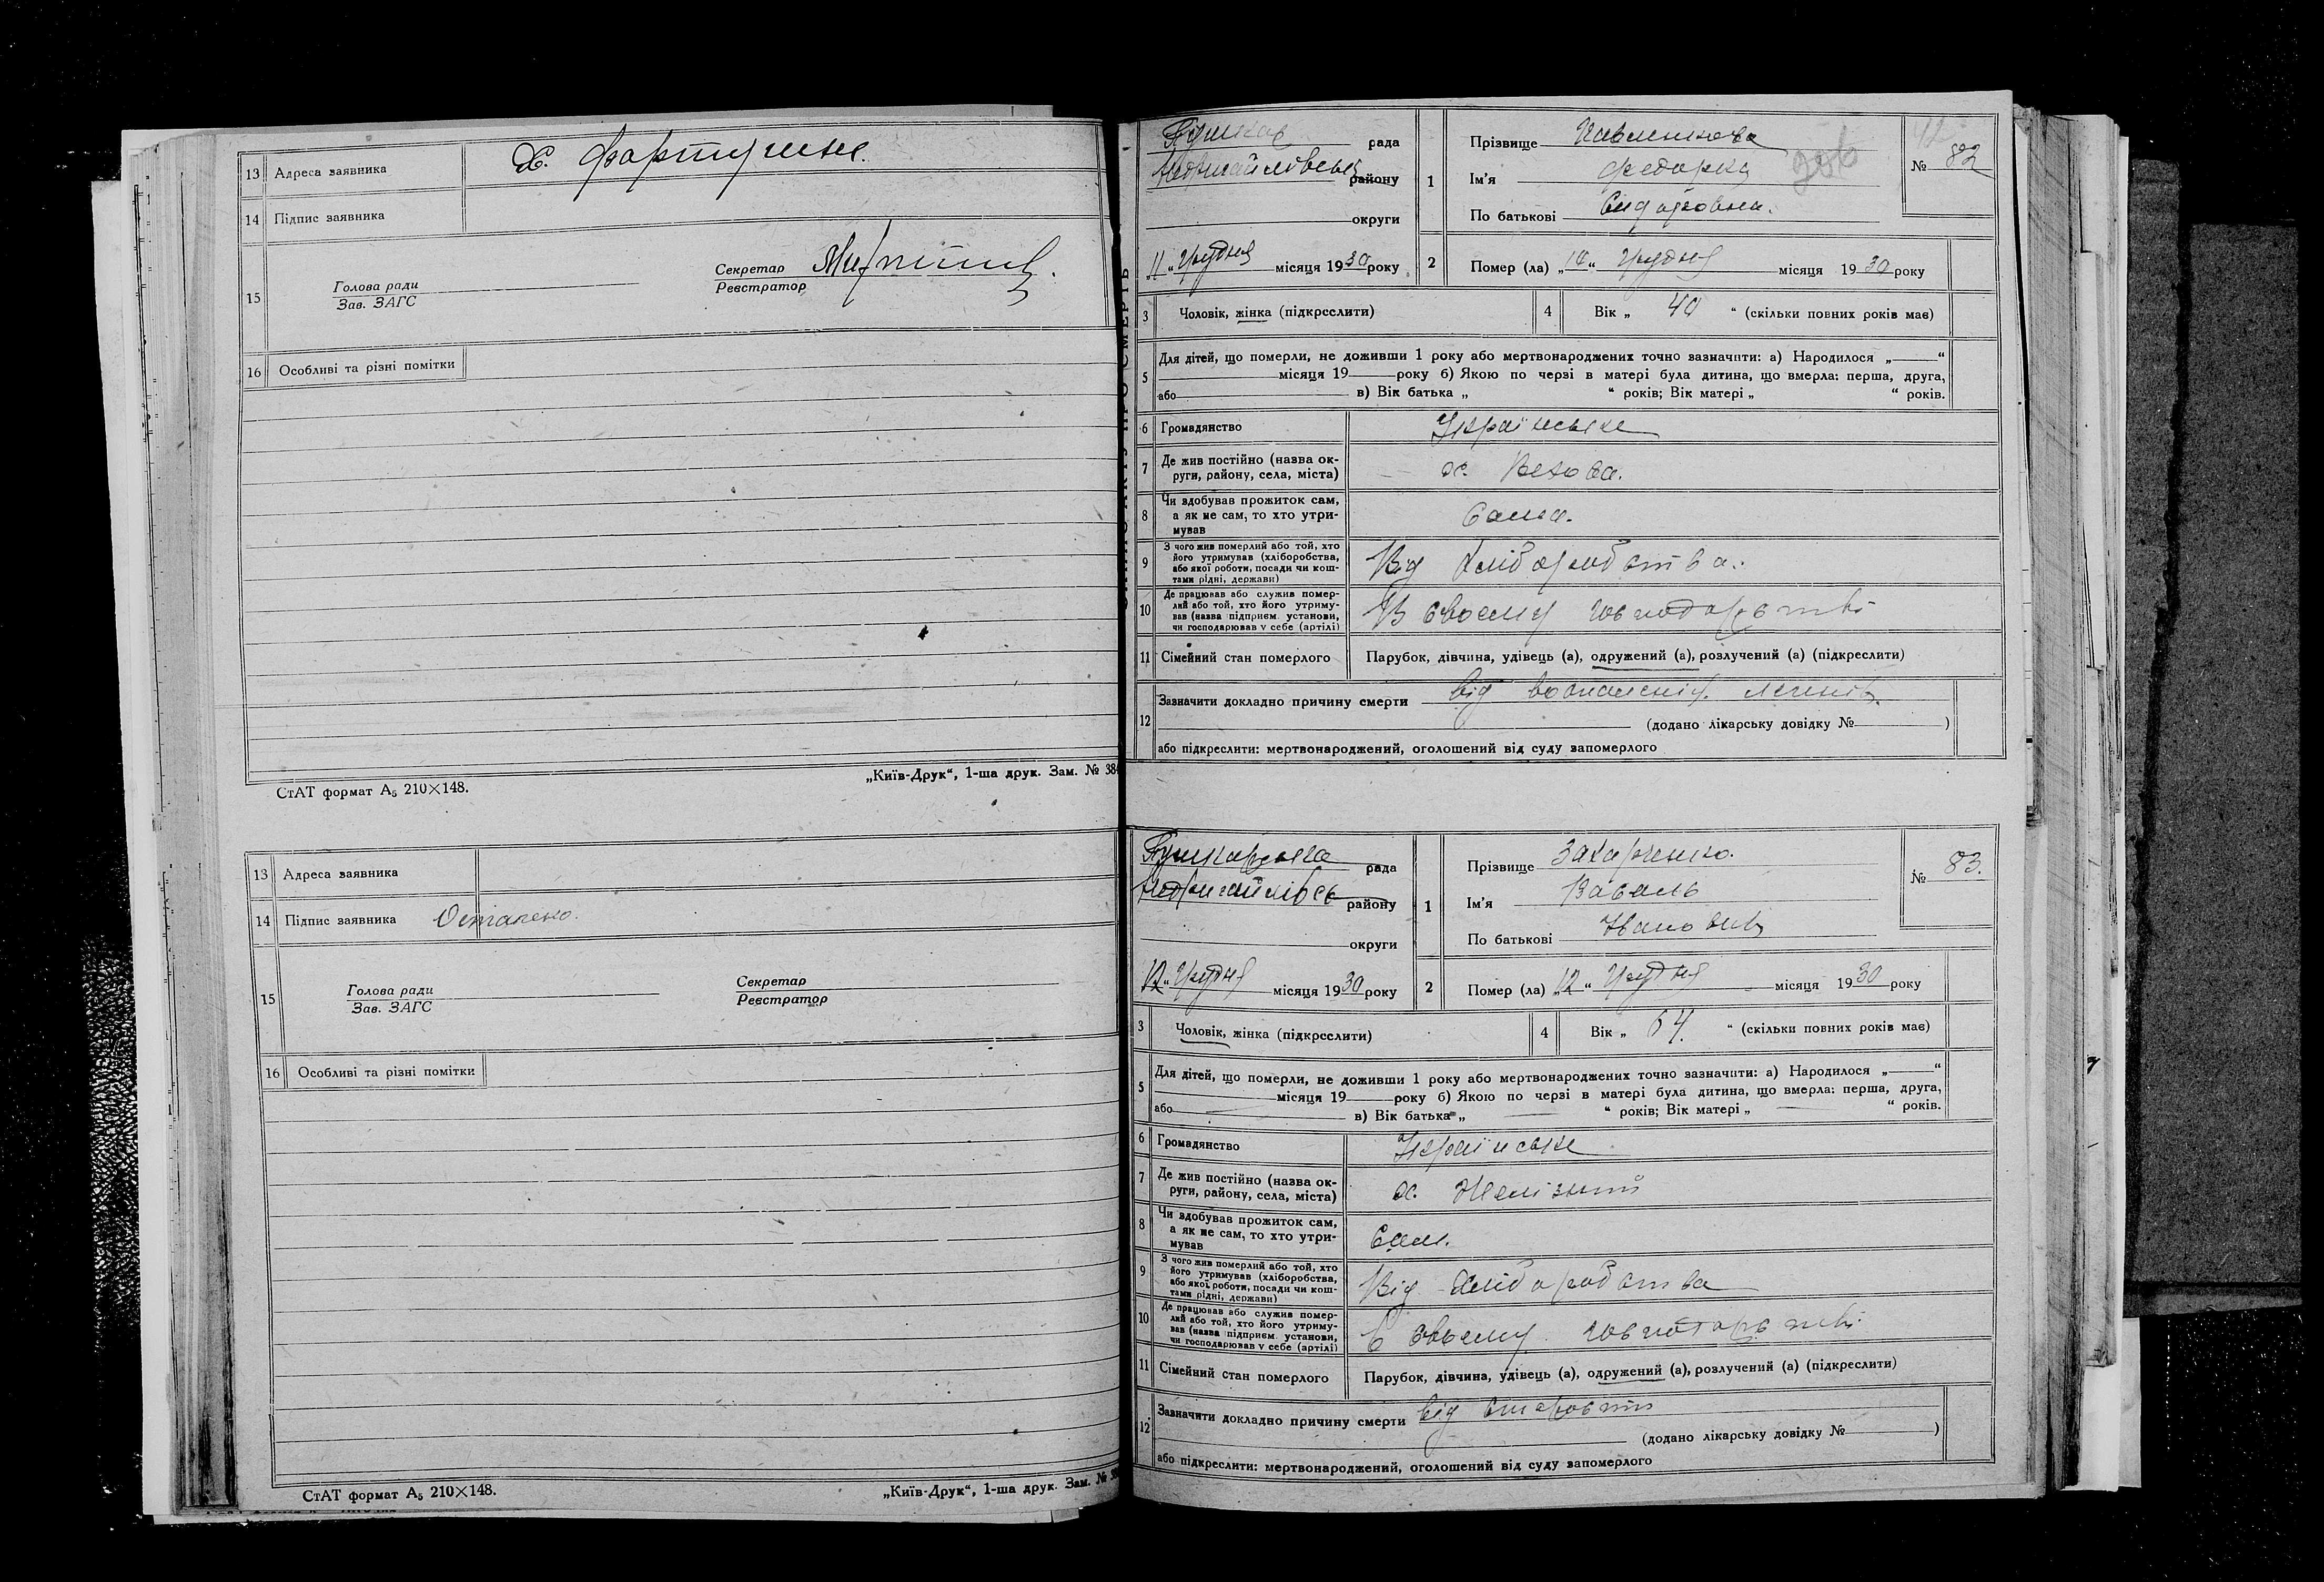 13 Адреса заявника Х. Фортушне.
14 Підпис заявника
15 Голова ради
Зав. ЗАГС
Секретар
Реєстратор
16 Особливі та різні помітки
СтАТ формат А5 210×148.
„Київ-Друк“, 1-ша друк. Зам. № 384
13 Адреса заявника
14 Підпис заявника Остапенко.
15 Голова ради
Зав. ЗАГС
Секретар
Реєстратор
16 Особливі та різні помітки
СтАТ формат А5 210×148.
„Київ-Друк“, 1-ша друк. Зам. №
рада
Недригайлівськ району
округи
11 „ Грудня місяця 1930 року
1 Прізвище Павленкова
Ім'я Федорка
По батькові Сидоровна.
№ 82
2 Помер (ла) „10“ Грудня місяця 1930 року
3 Чоловік, жінка (підкреслити)
4 Вік „ 40 “ (скільки повних років має)
5 Для дітей, що померли, не доживши 1 року або мертвонароджених точно зазначити: а) Народилося „ “
місяця 19 року б) Якою по черзі в матері була дитина, що вмерла: перша, друга,
або в) Вік батька „ “ років; Вік матері „ “ років.
6 Громадянство Українське
7 Де жив постійно (назва ок-
руги, району, села, міста) х. Вехова.
8 Чи здобував прожиток сам,
а як не сам, то хто утри-
мував Сама.
9 З чого жив померлий або той, хто
його утримував (хліборобства,
або якої роботи, посади чи кош-
тами рідні, держави) Від хліборобства.
10 Де працював або служив помер-
лий або той, хто його утриму-
вав (назва підприєм. установи,
чи господарював у себе (артілі) В своєму господарстві
11 Сімейний стан померлого Парубок, дівчина, удівець (а), одружений (а), розлучений (а) (підкреслити)
12 Зазначити докладно причину смерти від воспаленія легенів.
(додано лікарську довідку № )
або підкреслити: мертвонароджений, оголошений від суду запомерлого
Пушкарська рада
Недригайлівсь району
округи
12 „ Грудня місяця 1930 року
1 Прізвище Захарченко.
Ім'я Василь
По батькові Іванович
№ 83.
2 Помер (ла) „12“ Грудня місяця 1930 року
3 Чоловік, жінка (підкреслити)
4 Вік „ 64. “ (скільки повних років має)
5 Для дітей, що померли, не доживши 1 року або мертвонароджених точно зазначити: а) Народилося „ “
місяця 19 року б) Якою по черзі в матері була дитина, що вмерла: перша, друга,
або в) Вік батька „ “ років; Вік матері „ “ років.
6 Громадянство Українське
7 Де жив постійно (назва ок-
руги, району, села, міста) х. Желізний
8 Чи здобував прожиток сам,
а як не сам, то хто утри-
мував Сам.
9 З чого жив померлий або той, хто
його утримував (хліборобства,
або якої роботи, посади чи кош-
тами рідні, держави) Від хліборобства
10 Де працював або служив помер-
лий або той, хто його утриму-
вав (назва підприєм. установи,
чи господарював у себе (артілі) В своєму господарстві
11 Сімейний стан померлого Парубок, дівчина, удівець (а), одружений (а), розлучений (а) (підкреслити)
12 Зазначити докладно причину смерти від старости
(додано лікарську довідку № )
або підкреслити: мертвонароджений, оголошений від суду запомерлого